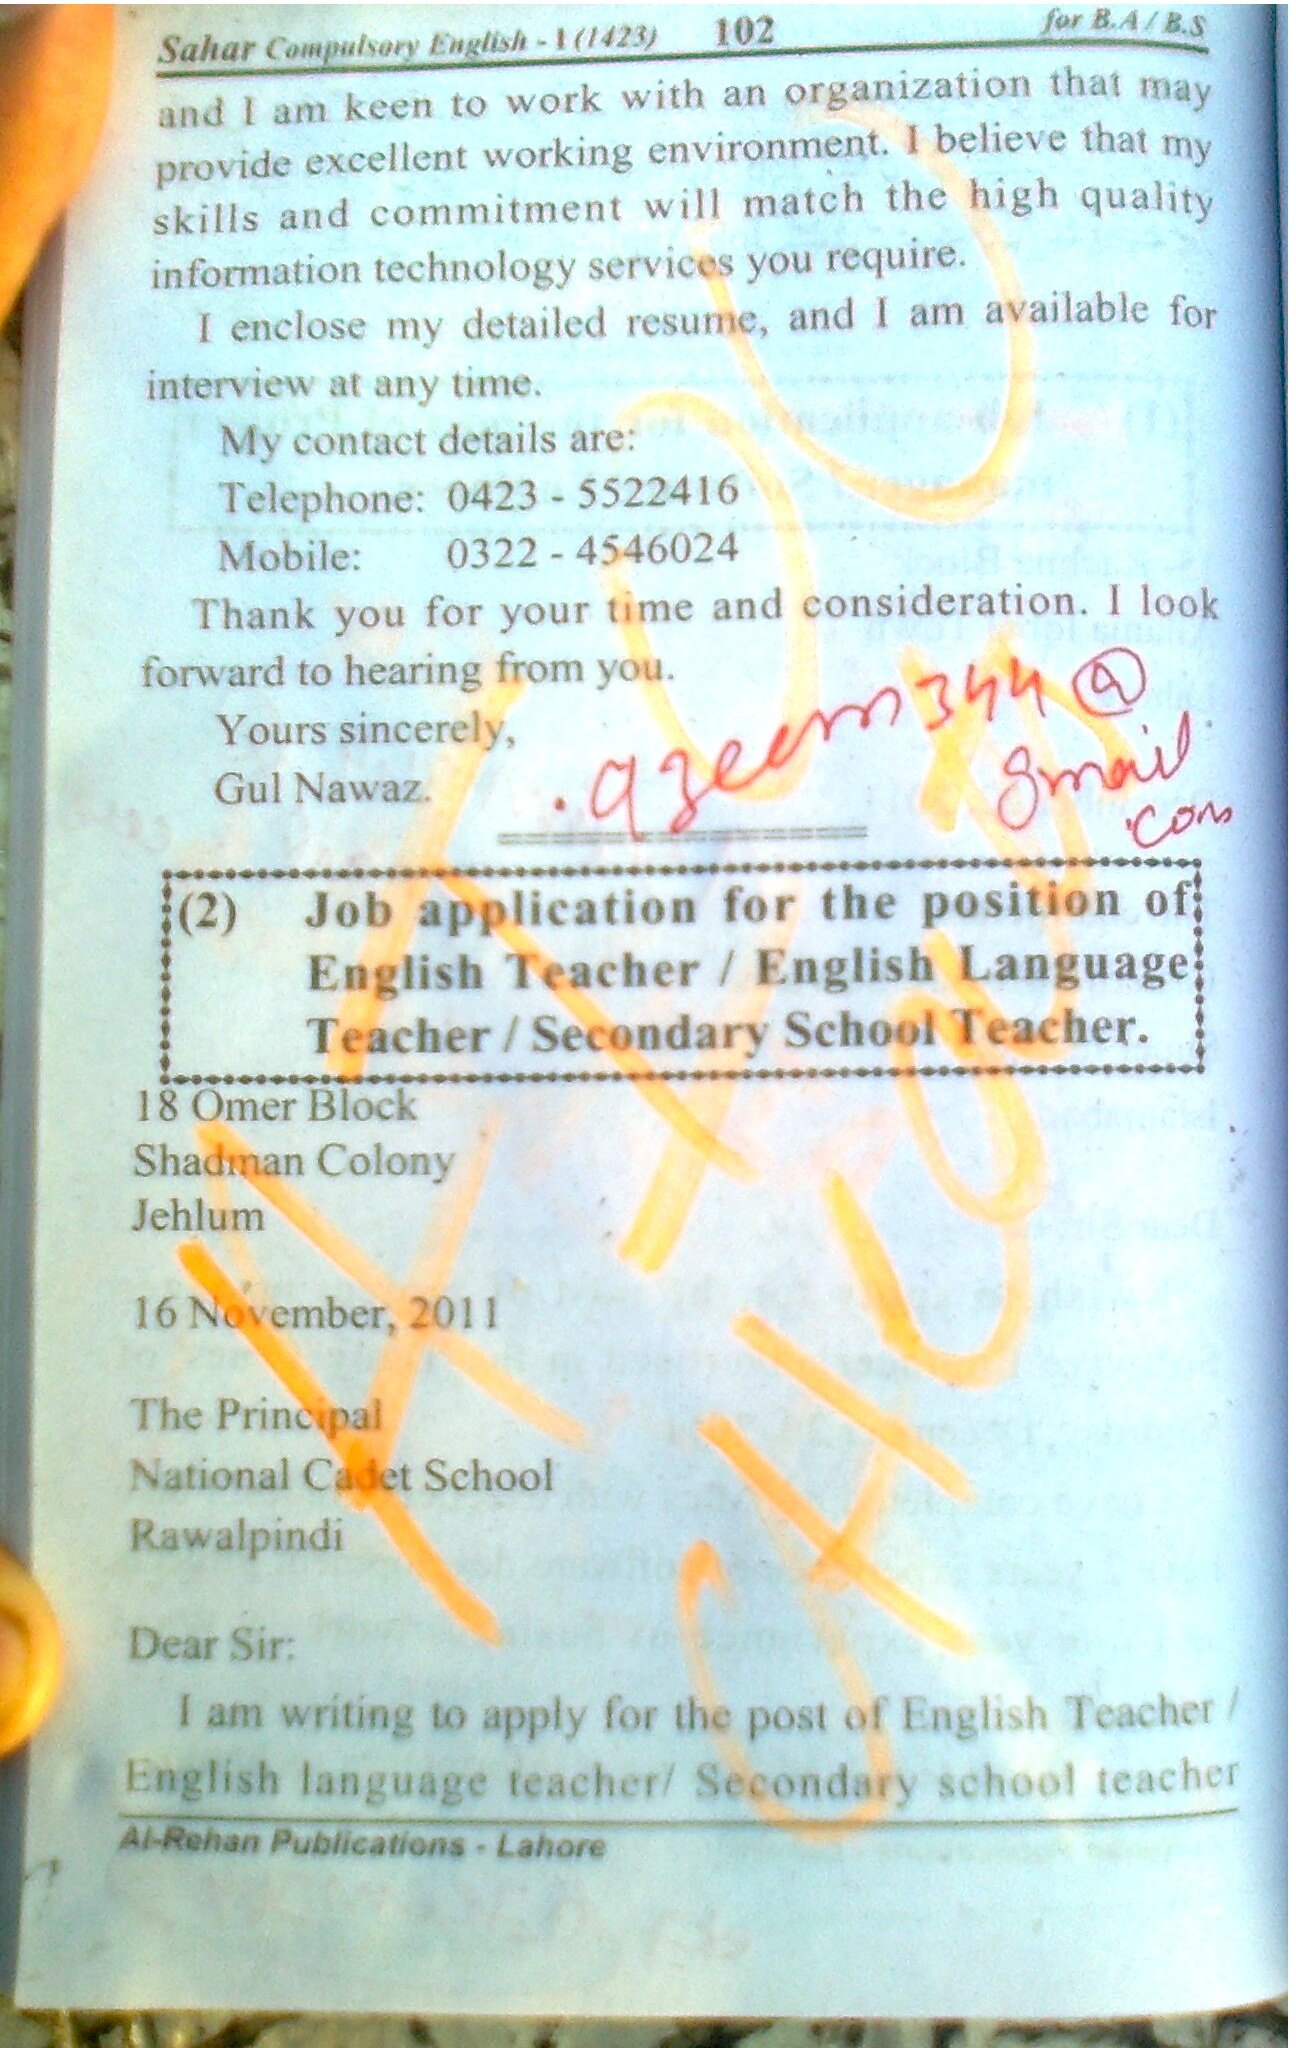 Sahar Compulsory English - I (1423) 102 for B.A / B.S
and I am keen to work with an organization that may
provide excellent working environment. I believe that my
skills and commitment will match the high quality
information technology services you require.
I enclose my detailed resume, and I am available for
interview at any time.
My contact details are:
Telephone: 0423 - 5522416
Mobile: 0322 - 4546024
Thank you for your time and consideration. I look
forward to hearing from you.
Yours sincerely,
Gul Nawaz.
.azeem344@
gmail
.com
(2) Job application for the position of
English Teacher / English Language
Teacher / Secondary School Teacher.
18 Omer Block
Shadman Colony
Jehlum
16 November, 2011
The Principal
National Cadet School
Rawalpindi
Dear Sir:
I am writing to apply for the post of English Teacher /
English language teacher/ Secondary school teacher
Al-Rehan Publications - Lahore